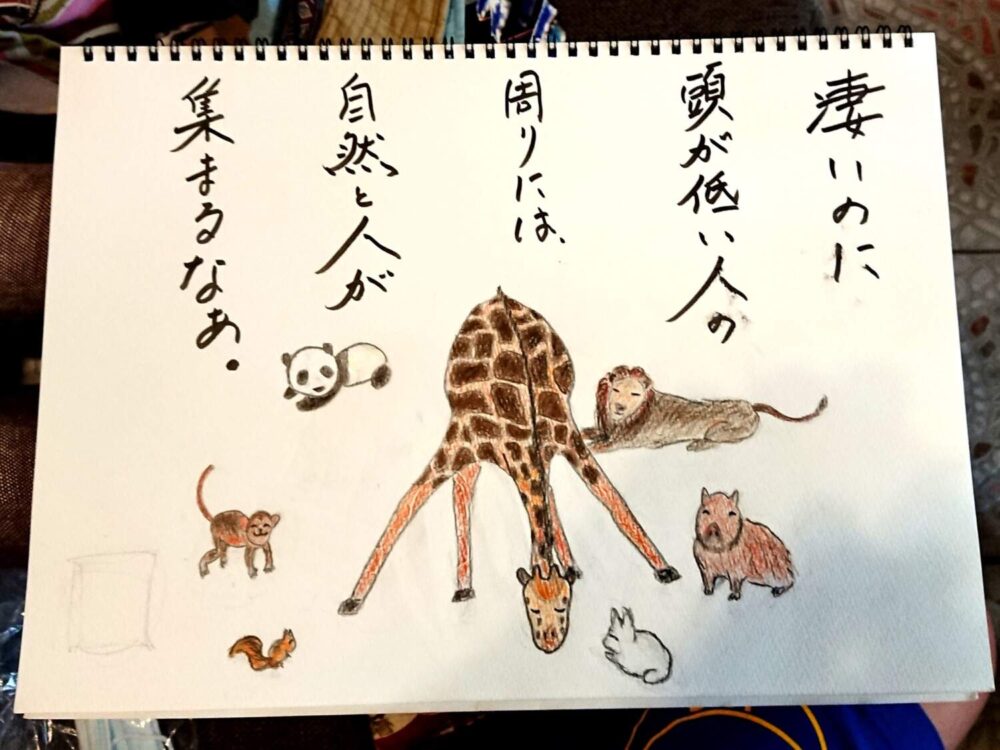 凄いのに
頭が低い人の
周りには、
自然と人が
集まるなぁ。